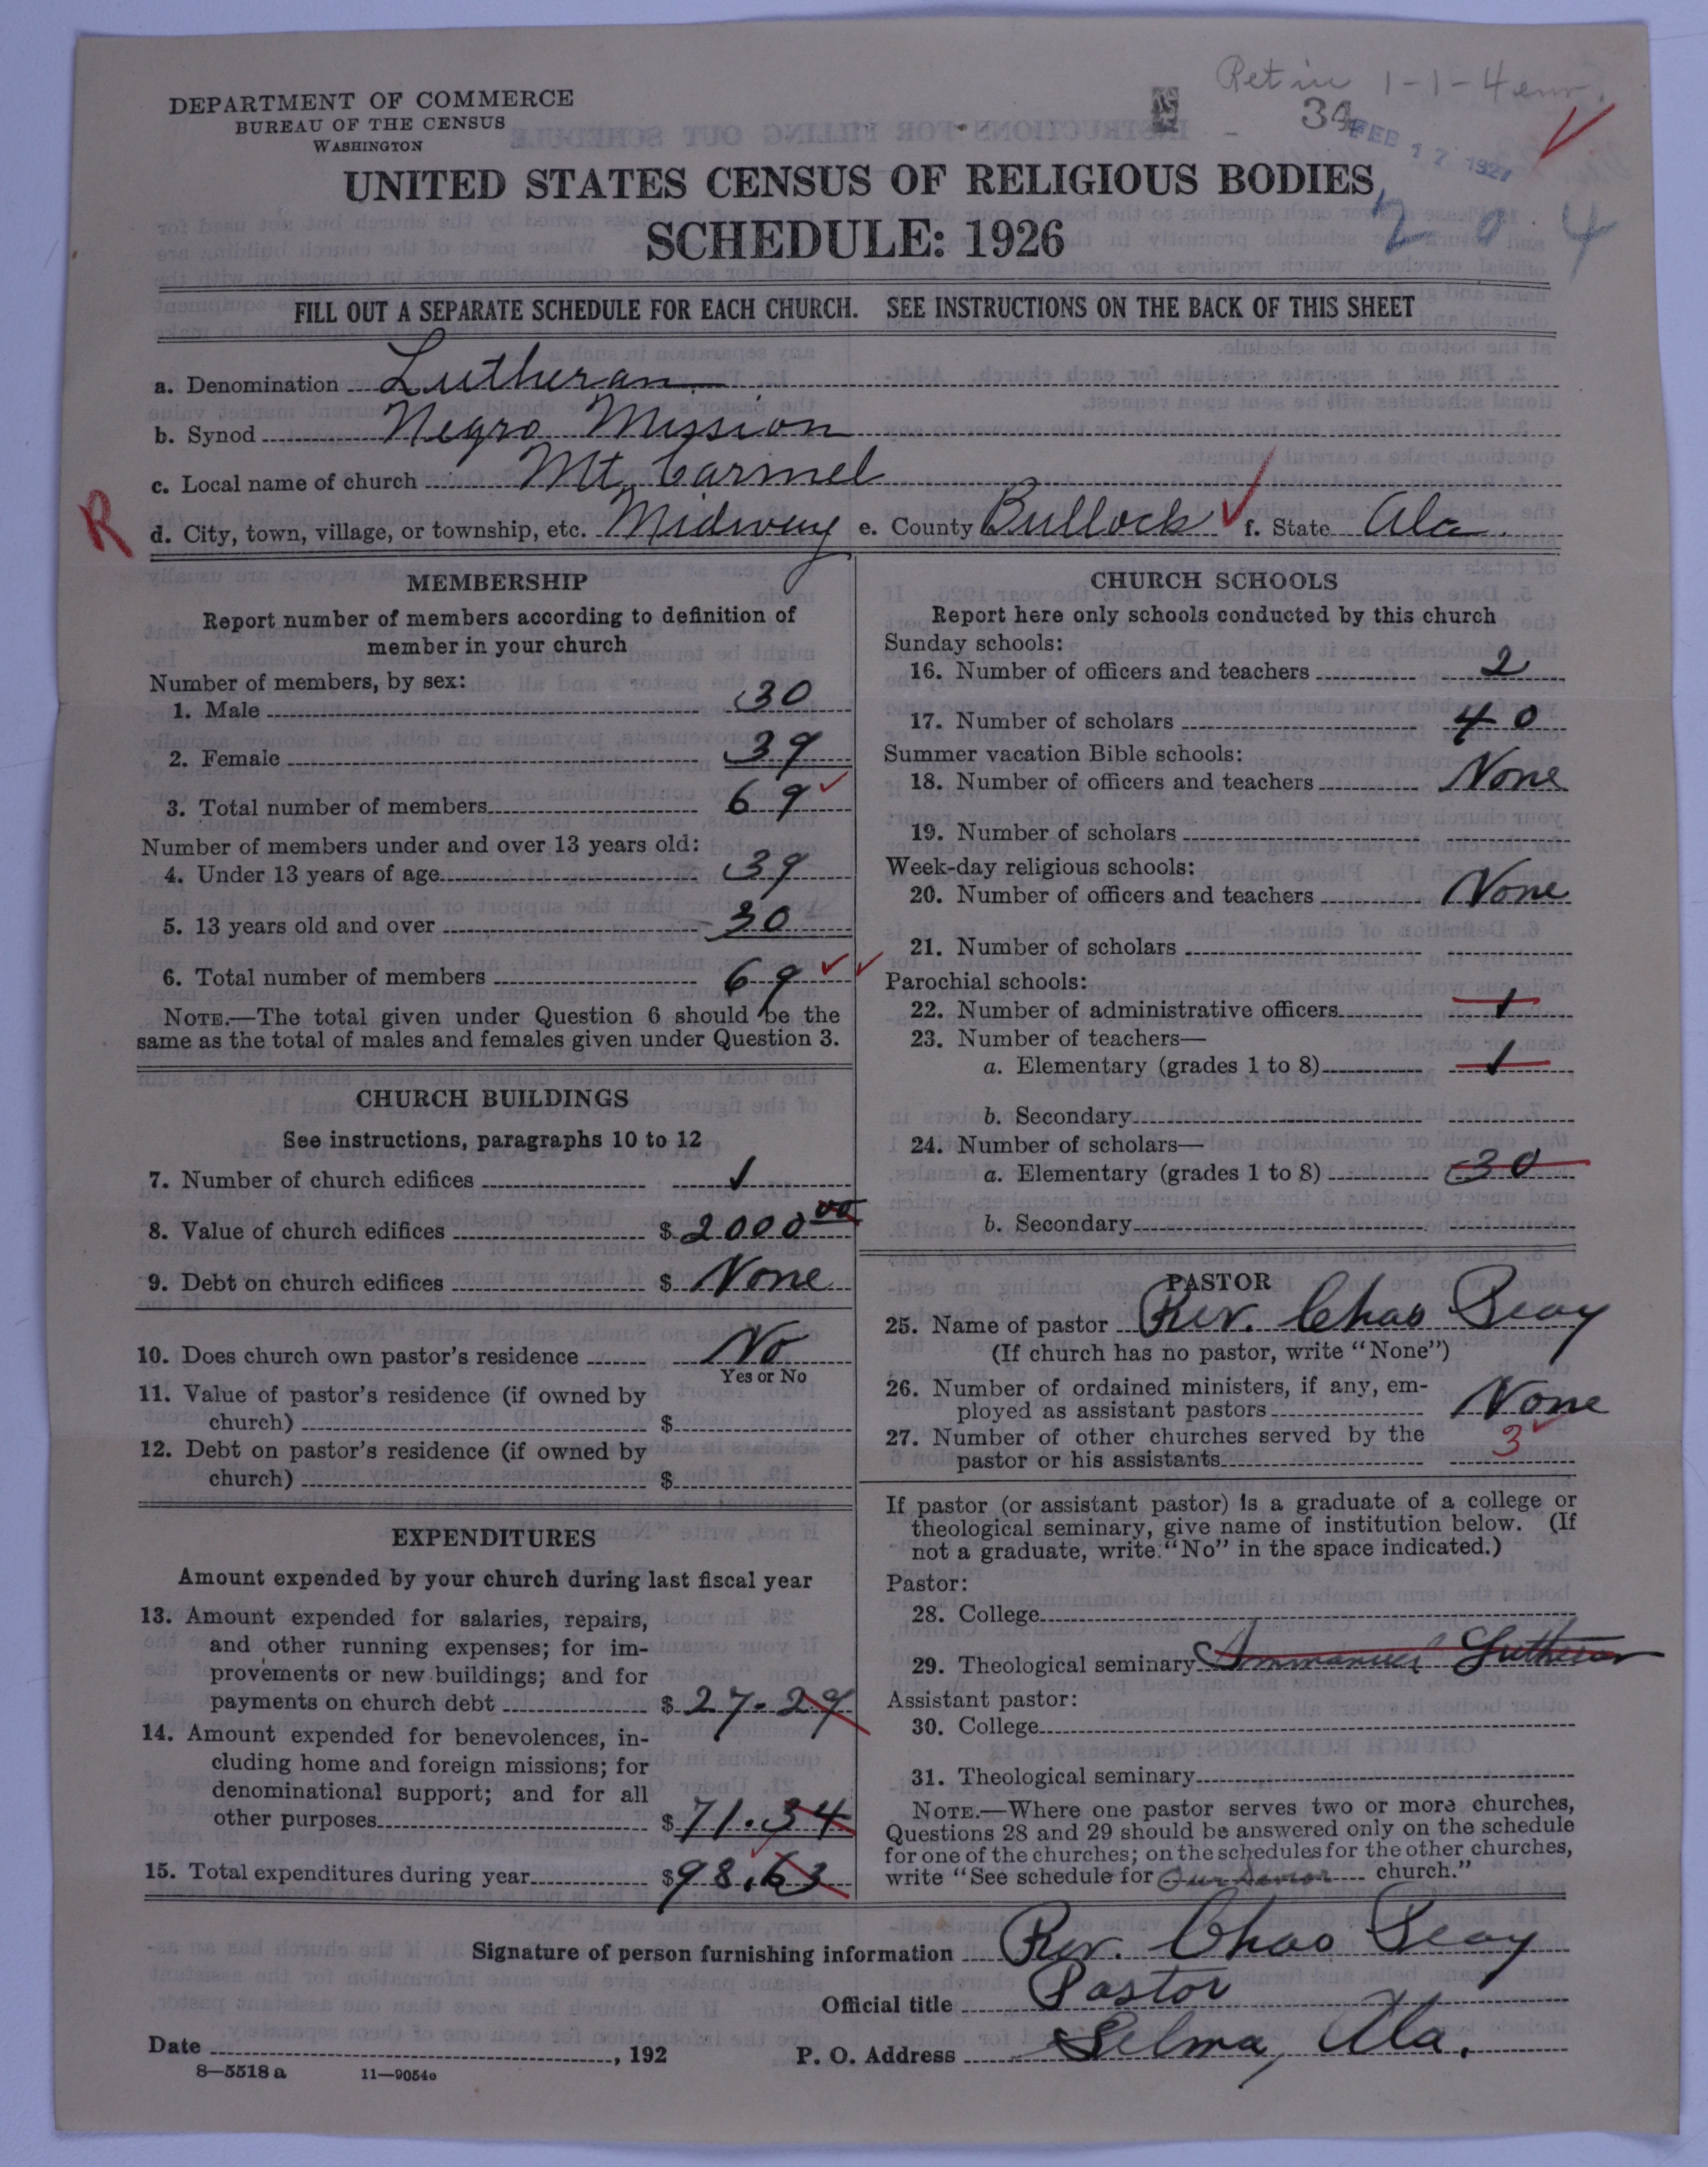 Ret in 1-1-4 em.
DEPARTMENT OF COMMERCE
BUREAU OF THE CENSUS
WASHINGTON
34
FEB 17 1927
UNITED STATES CENSUS OF RELIGIOUS BODIES
SCHEDULE: 1926
2 0 4
FILL OUT A SEPARATE SCHEDULE FOR EACH CHURCH. SEE INSTRUCTIONS ON THE BACK OF THIS SHEET
a. Denomination Lutheran
b. Synod Negro Mission
c. Local name of church Mt. Carmel
R
d. City, town, village, or township, etc. Midway e. County Bullock f. State Ala.
MEMBERSHIP
Report number of members according to definition of
member in your church
Number of members, by sex:
1. Male 30
2. Female 39
3. Total number of members 69
Number of members under and over 13 years old:
4. Under 13 years of age 39
5. 13 years old and over 30
6. Total number of members 69
NOTE.—The total given under Question 6 should be the
same as the total of males and females given under Question 3.
CHURCH BUILDINGS
See instructions, paragraphs 10 to 12
7. Number of church edifices 1
8. Value of church edifices $ 2000 00
9. Debt on church edifices $ None
10. Does church own pastor's residence No
Yes or No
11. Value of pastor's residence (if owned by
church) $
12. Debt on pastor's residence (if owned by
church) $
EXPENDITURES
Amount expended by your church during last fiscal year
13. Amount expended for salaries, repairs,
and other running expenses; for im-
provements or new buildings; and for
payments on church debt $ 27.29
14. Amount expended for benevolences, in-
cluding home and foreign missions; for
denominational support; and for all
other purposes $ 71.34
15. Total expenditures during year $ 98.63
CHURCH SCHOOLS
Report here only schools conducted by this church
Sunday schools:
16. Number of officers and teachers 2
17. Number of scholars 40
Summer vacation Bible schools:
18. Number of officers and teachers None
19. Number of scholars
Week-day religious schools:
20. Number of officers and teachers None
21. Number of scholars
Parochial schools:
22. Number of administrative officers 1
23. Number of teachers—
a. Elementary (grades 1 to 8) 1
b. Secondary
24. Number of scholars—
a. Elementary (grades 1 to 8) 30
b. Secondary
PASTOR
25. Name of pastor Rev. Chas Peay
(If church has no pastor, write "None")
26. Number of ordained ministers, if any, em-
ployed as assistant pastors None
27. Number of other churches served by the
pastor or his assistants 3
If pastor (or assistant pastor) is a graduate of a college or
theological seminary, give name of institution below. (If
not a graduate, write "No" in the space indicated.)
Pastor:
28. College
29. Theological seminary Immanuel Lutheran
Assistant pastor:
30. College
31. Theological seminary
NOTE.—Where one pastor serves two or more churches,
Questions 28 and 29 should be answered only on the schedule
for one of the churches; on the schedules for the other churches,
write "See schedule for Our Savior church."
Signature of person furnishing information Rev. Chas Peay
Official title Pastor
Date , 192 P. O. Address Selma, Ala.
8—5518 a 11—9054e